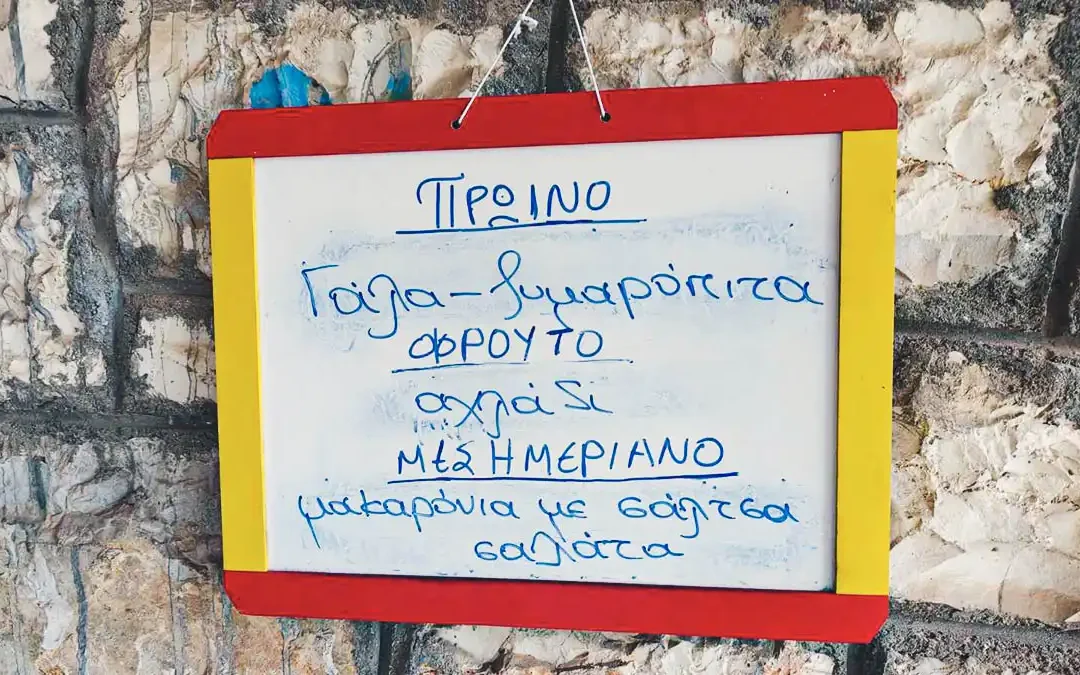 ΠΡΩΙΝΟ
Γάλα - ζυμαρόπιτα
ΦΡΟΥΤΟ
αχλάδι
ΜΕΣΗΜΕΡΙΑΝΟ
μακαρόνια με σάλτσα
σαλάτα